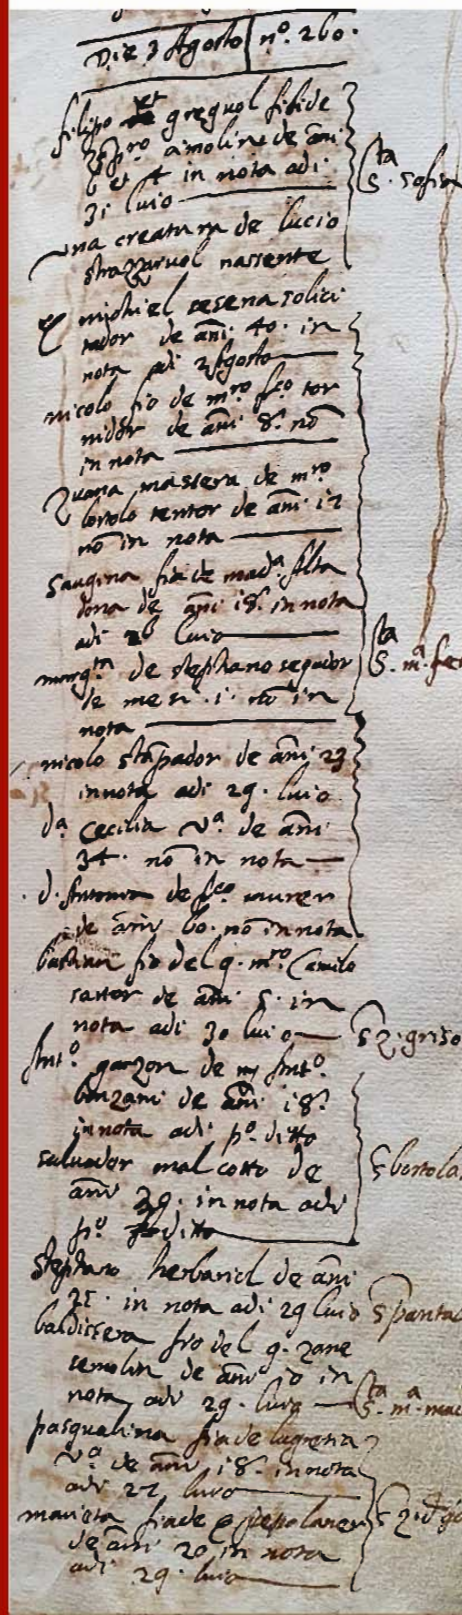 Die 3 Agosto nº. 260.
filipo et greguol fiti de
pro amolin de ani
6 et 4 in nota adi
31 luio
una creatura de lucio
strazzaruol nassente
michiel cesena solici
tador de ani 40. in
nota adi 2 Agosto
nicolo fio de mro fco tor
nidor de ani 8. nō
in nota
Zuana massera de mro
bortolo tentor de ani 12
nō in nota
fia de mada Alta
dona de ani 18. in nota
adi 26 luio
margta de stephano segador
de mesi .1. nō in
nota
nicolo stāpador de ani 23
in nota adi 29. luio
da Cecilia va. de ani
34. nō in nota
d. Antonia de fco
de ani 60. nō in nota
fio del q. mro Camilo
sartor de ani 5. in
nota adi 30 luio
Anto. garzon de m Anto.
bonzani de ani 18.
in nota adi po. ditto
salvador mal cotto de
ani 29. in nota adi
po. ditto
Stephano herbariol de ani
25. in nota adi 29 luio
baldissera fio del q. zane
semolin de ani 10 in
nota adi 29. luio
pasqualina fia de lugretia
va de ani 18. in nota
adi 22 luio
marieta fia de
de ani 20 in nota
adi 29. luio
Sta. sofia
Sta. ma. for
S z. griso
S bortola
S panta
Sta. ma. mad
S z.